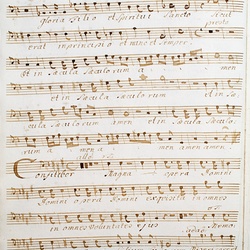 gloria Filio et Spiritui Sancto Sicut
erat in principio et nunc et semper
et in saecula saeculorum amen
et in saecula saeculorum et in
cula saeculorum amen et in saecu
rum amen amen
Confitebor Magna opera Domini
Domini opera Domini exquisita in omnes
in omnes voluntates ejus